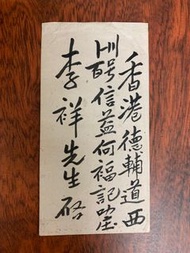 香港德輔道西
號信益何福記
李祥先生啓